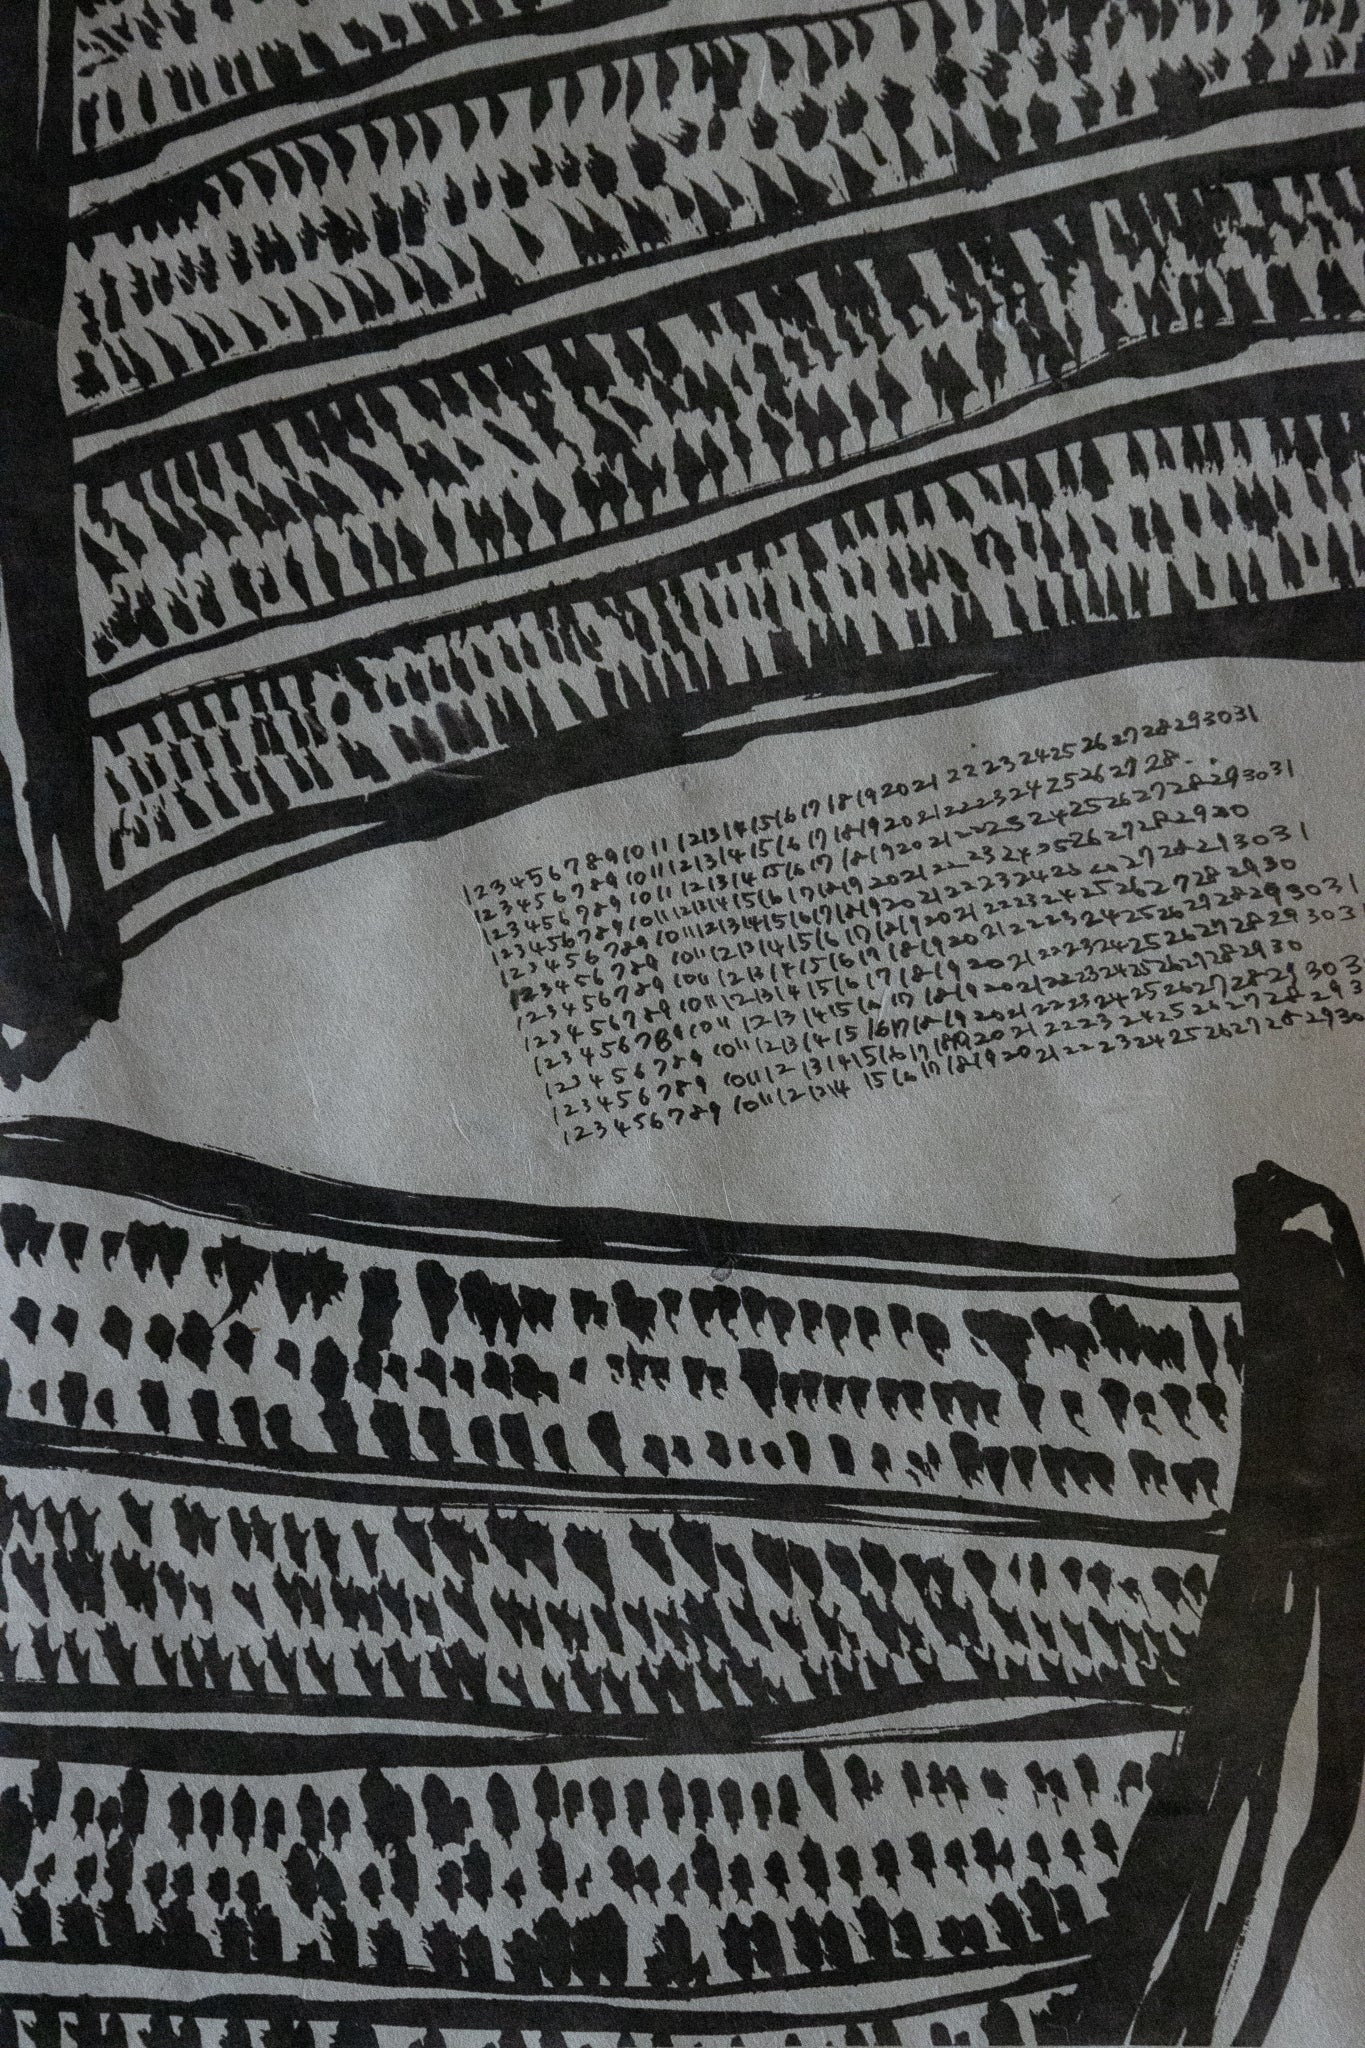 1 2 3 4 5 6 7 8 9 10 11 12 13 14 15 16 17 18 19 20 21 22 23 24 25 26 27 28 29 30 31
1 2 3 4 5 6 7 8 9 10 11 12 13 14 15 16 17 18 19 20 21 22 23 24 25 26 27 28 . .
1 2 3 4 5 6 7 8 9 10 11 12 13 14 15 16 17 18 19 20 21 22 23 24 25 26 27 28 29 30 31
1 2 3 4 5 6 7 8 9 10 11 12 13 14 15 16 17 18 19 20 21 22 23 24 25 26 27 28 29 30
1 2 3 4 5 6 7 8 9 10 11 12 13 14 15 16 17 18 19 20 21 22 23 24 25 26 27 28 29 30 31
1 2 3 4 5 6 7 8 9 10 11 12 13 14 15 16 17 18 19 20 21 22 23 24 25 26 27 28 29 30
1 2 3 4 5 6 7 8 9 10 11 12 13 14 15 16 17 18 19 20 21 22 23 24 25 26 27 28 29 30 31
1 2 3 4 5 6 7 8 9 10 11 12 13 14 15 16 17 18 19 20 21 22 23 24 25 26 27 28 29 30 31
1 2 3 4 5 6 7 8 9 10 11 12 13 14 15 16 17 18 19 20 21 22 23 24 25 26 27 28 29 30
1 2 3 4 5 6 7 8 9 10 11 12 13 14 15 16 17 18 19 20 21 22 23 24 25 26 27 28 29 30
1 2 3 4 5 6 7 8 9 10 11 12 13 14 15 16 17 18 19 20 21 22 23 24 25 26 27 28 29
1 2 3 4 5 6 7 8 9 10 11 12 13 14 15 16 17 18 19 20 21 22 23 24 25 26 27 28 29 30